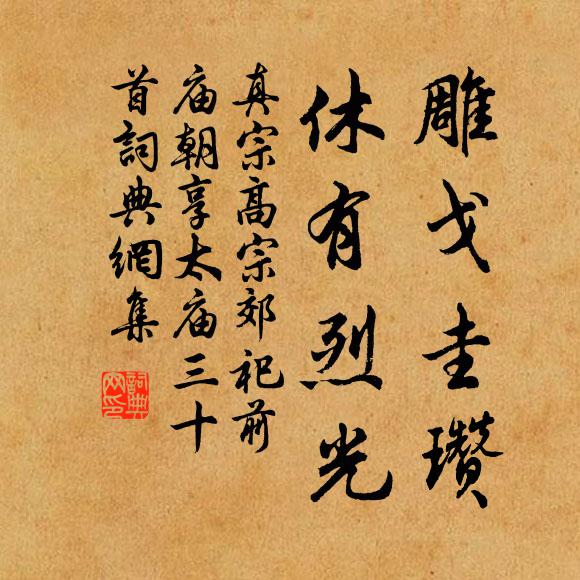 雕戈圭瓚
休有烈光
真宗高宗郊祀前
庙朝享太庙三十
首詞典網集
詞典
网印